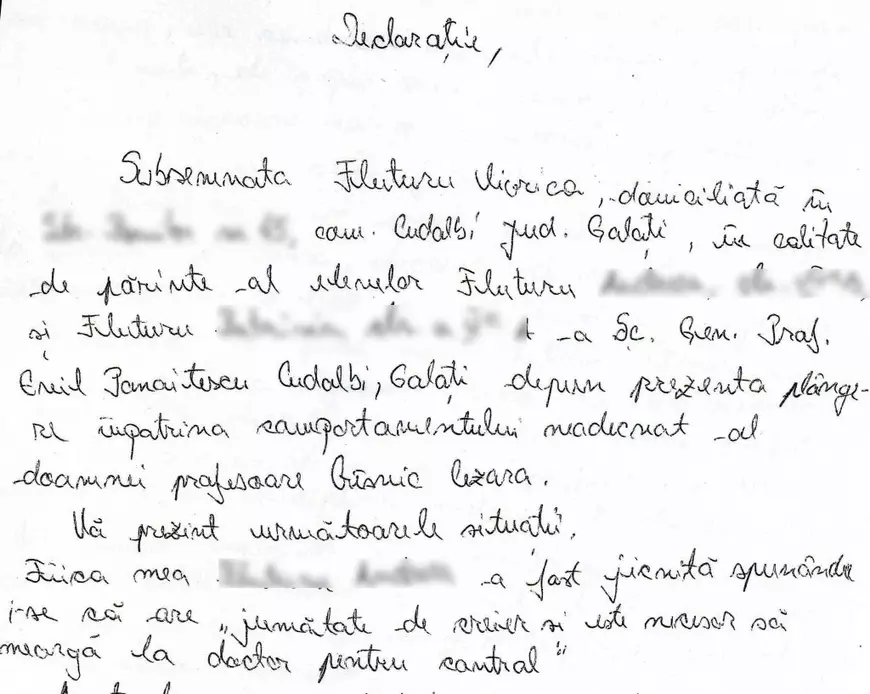 Declarație,
Subsemnata Fluturu Viorica, domiciliată în
com. Cudalbi jud. Galați, în calitate
de părinte al elevelor Fluturu
și Fluturu a Șc. Gen. Prof.
Emil Panaitescu Cudalbi, Galați depun prezenta plânge-
re împotriva comportamentului neadecvat al
doamnei profesoare Cezara.
Vă prezint următoarele situații,
Fiica mea a fost jicnită spunându
i-se că are „jumătate de creier și este necesar să
meargă la doctor pentru control"